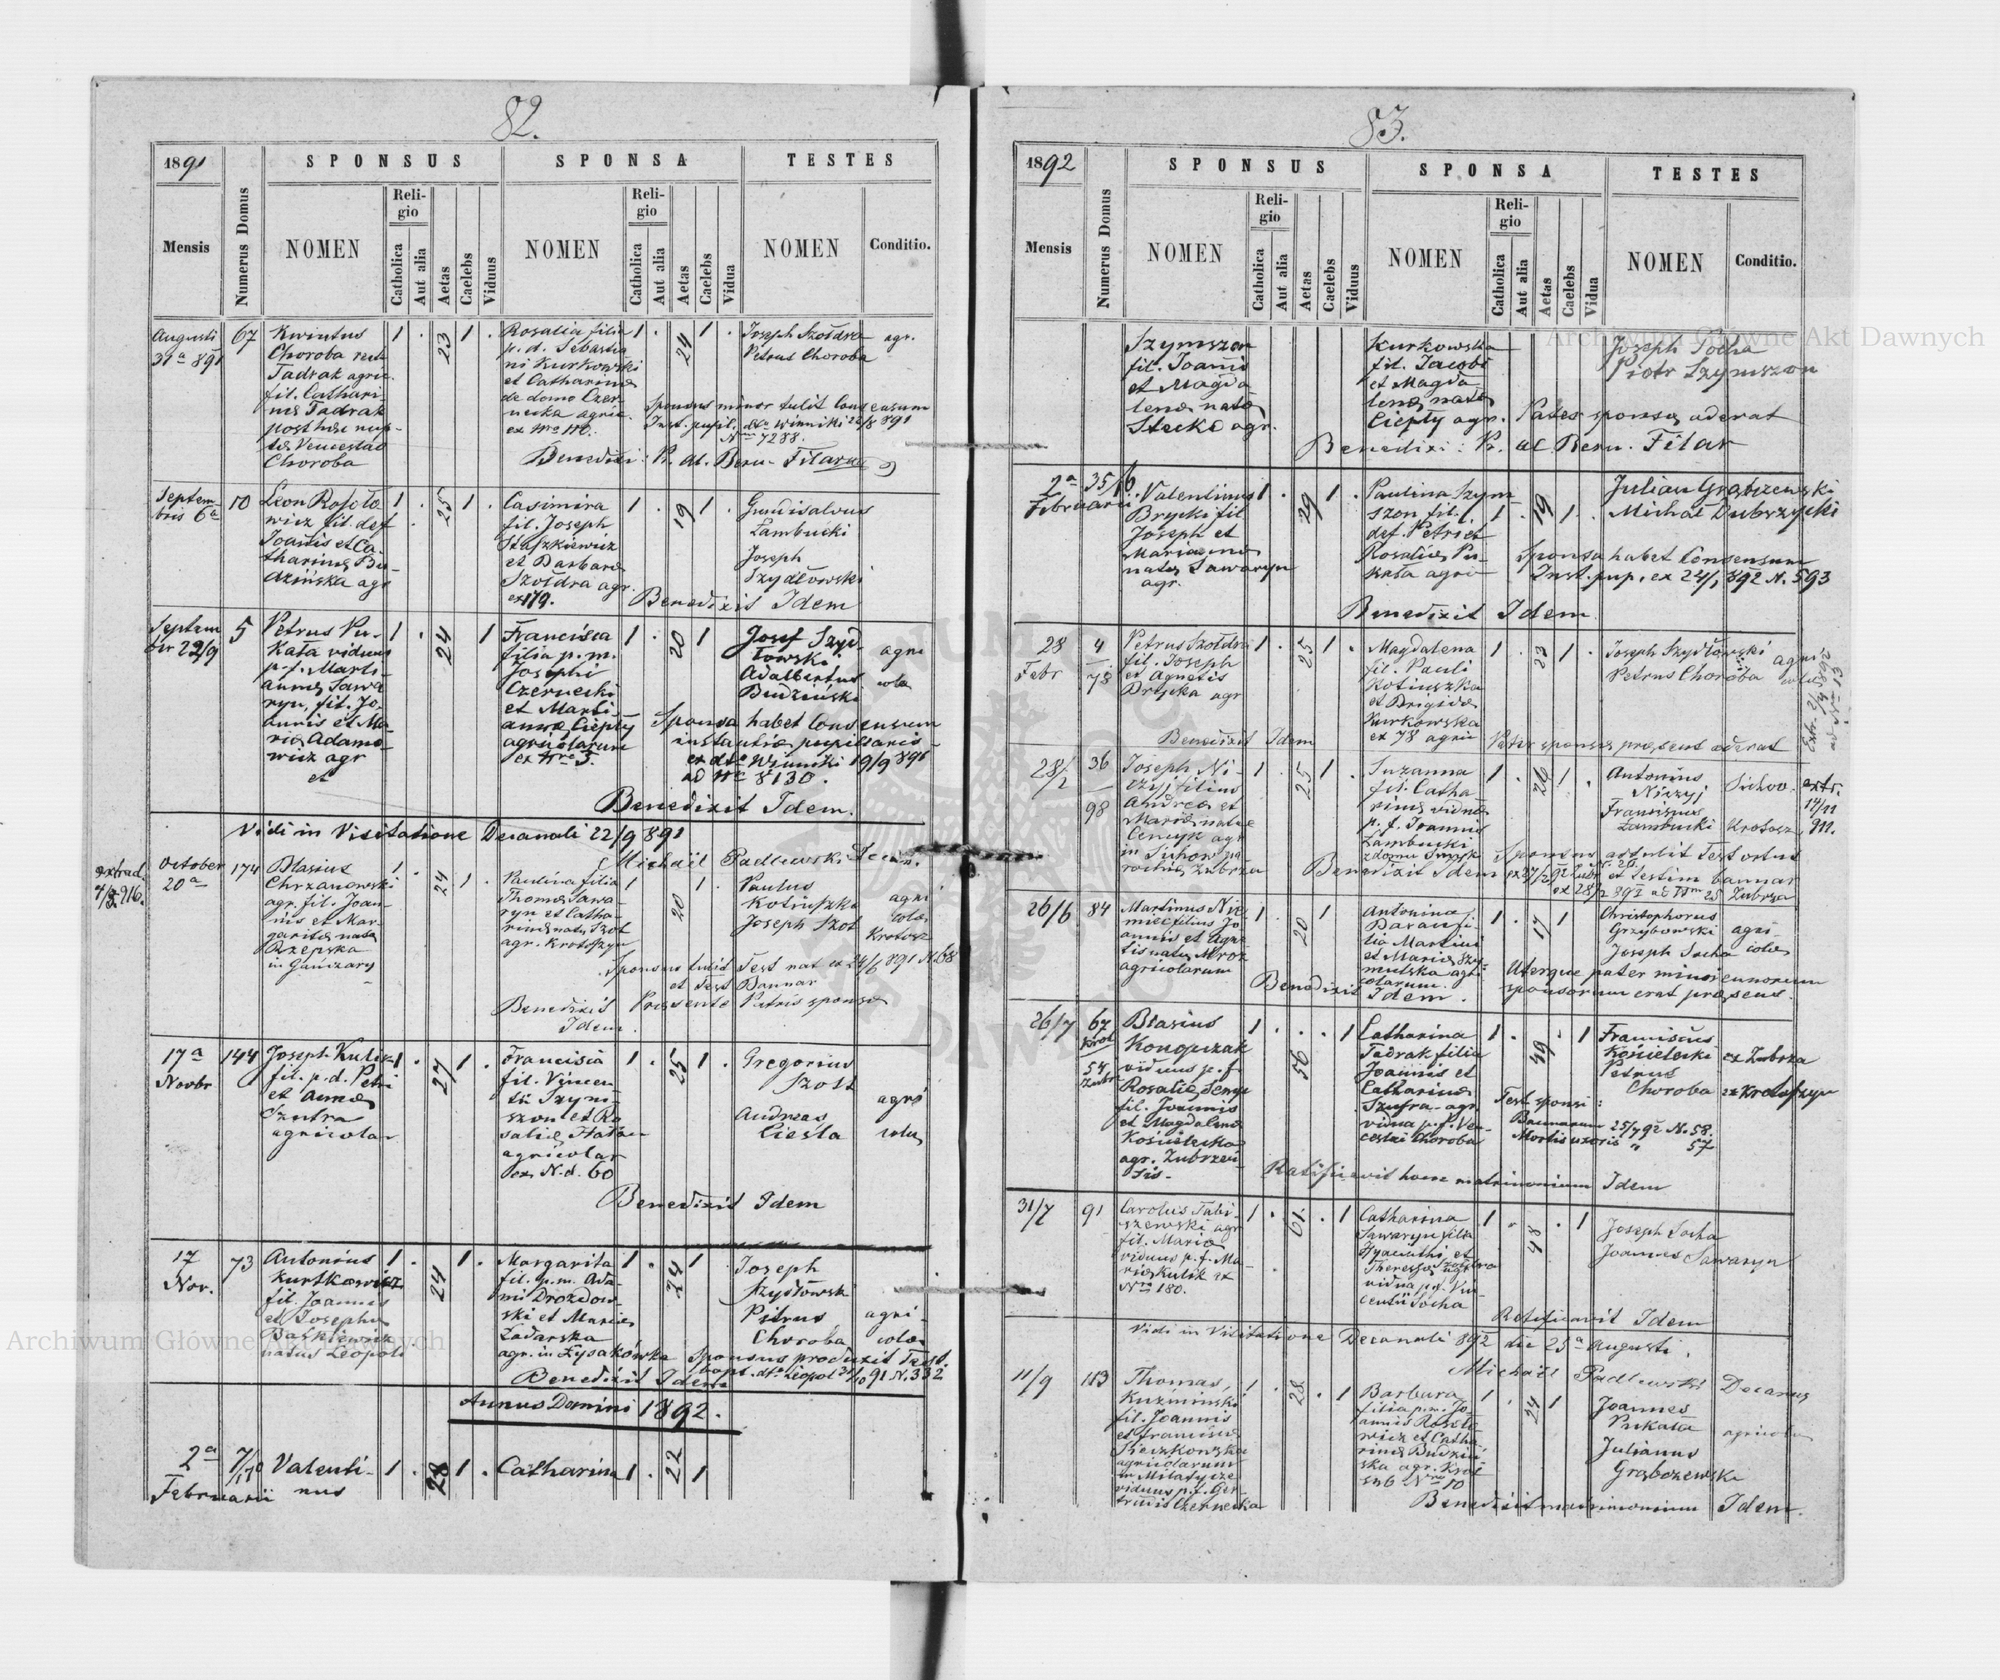 82.
1891
Mensis
Numerus Domus
SPONSUS
NOMEN
Religio
Catholica
Aut alia
Aetas
Caelebs
Viduus
SPONSA
NOMEN
Religio
Catholica
Aut alia
Aetas
Caelebs
Vidua
TESTES
NOMEN
Conditio.
Augusti
31a 891
67
Choroba
Tadrak agric.
fil. Cathari-
nae Tadrak
post hac nup-
tae Venceslao
Choroba
1 . 23 1 .
Rosalia filia
p. d. Sebastia
ni Kurkowski
et Catharinae
de domo Czer-
necka agric.
ex Nro 110.
1 . 24 1 .
Joseph Szołdra
Petrus Choroba
agr.
Sponsus minor tulit Consensum
Inst. pupil. dto Winniki 26/8 891
Nrum 7288.
Benedixi: P. al. Bern. Filar
Septem
bris 6a
10
Leon Rosoło
wicz fil. def
Joannis et Ca-
tharinae Bu
dzińska agr
1 . 25 1 .
Casimira
fil. Joseph
Staszkiewicz
et Barbarae
Szołdra agr.
ex 179.
1 . 19 1 .
Gundisalvus
Zambucki
Joseph
Szydłowski
Benedixit Idem
Septem
br 22/9
5
Petrus Pu-
kała viduus
p. f. Marti-
annae Sawa
ryn, fil. Jo-
annis et Ma-
riae Adamo-
wicz agr
1 . 24 1
Francisca
filia p. m.
Josephi
Czernecki
et Marti-
annae Ciepły
agricolarum
ex Nro 3.
1 . 20 1
Josef Szyd-
łowski
Adalbertus
Budziński
agri
colae
Sponsa habet Consensum
instantiae pupillaris
ex dto Winniki 19/9 891
ad Nro 8130.
Benedixit Idem.
Vidi in Visitatione Decanali 22/9 891
Michael Padlewski Decan.
extrad.
October
20a
174
Blasius
Chrzanowski
agr. fil. Joan-
nis et Mar-
garitae nata
Rzepska
in Ganczary
1 . 24 1 .
Paulina filia
Thomae Sawa-
ryn et Catha-
rinae natae Szot
agr. Krotoszyn
1 20 1 .
Paulus
Kosiuszka
Joseph Szot
agri
colae
Krotosz
Sponsus tulit Test nat ex 24/6 891 N. 68
et Test Bannor
Benedixit Praesente Patris sponsae
Idem.
17a
Novbr
144
Joseph Kulik
fil. p. d. Petri
et Annae
Szufra
agricolar
1 . 27 1 .
Francisca
fil. Vincen-
tii Szym-
szon et Ro
saliae
agricolar
ex N. d. 60
1 . 25 1 .
Gregorius
Szost
Andreas
Cieśla
agri
colae
Benedixit Idem
17
Nov.
73
Antonius
Kurtkowicz
fil. Joannis
et Josephae
Baśkiewicz
natus Leopoli
1 . 24 1 .
Margarita
fil. p. m. Ada-
mi Drozdow-
ski et Mariae
Ladarska
agr. in Łysakówka
1 . 24 1
Joseph
Szydłowsk
Petrus
Choroba
agri-
colae
Sponsus produxit Test.
bapt. dto Leopol 31/10 91 N. 332
Benedixit Idem
Annus Domini 1892.
2a
Februarii
7/170
Valenti-
nus
1 . 28 1 .
Catharina
1 . 22 1
83.
1892
Mensis
Numerus Domus
SPONSUS
NOMEN
Religio
Catholica
Aut alia
Aetas
Caelebs
Viduus
SPONSA
NOMEN
Religio
Catholica
Aut alia
Aetas
Caelebs
Vidua
TESTES
NOMEN
Conditio.
Szymszon
fil. Joannis
et Magda
lenae natae
Stecka agr.
Kurkowska
fil. Jacobi
et Magda
lenae natae
Ciepły agr.
Joseph Socha
Piotr Szymszon
Pater sponsae aderat
Benedixi: P. al. Bern. Filar
2a
Februarii
35/6
Valentinus
Brycki fil
Joseph et
Mariannae
natae Sawaryn
agr.
1 . 29 1 .
Paulina Szym
szon fil.
def. Petri et
Rosaliae Pu-
kała agric
1 . 19 1 .
Julian Grabczewski
Michał Dubrzycki
Sponsa habet Consensum
Inst. pup. ex 24/1 892 N. 593
Benedixit Idem
28
Febr
4
78
Petrus Szołdra
fil. Joseph
et Agnetis
Brycka agr
1 . 25 1 .
Magdalena
fil. Pauli
Kosiuszka
et Brigidae
Kurkowska
ex 78 agric
1 . 23 1 .
Joseph Szydłowski
Petrus Choroba
agri
colae
Benedixit Idem
Pater sponsae praesens aderat
28/2
36
98
Joseph Ni-
czyj filius
Andreae et
Mariae natae
Cencyk agr
in Sichow pa-
rochiae Zubrza
1 . 25 1 .
Suzanna
fil. Catha
rinae viduae
p. f. Joannis
Zambucki
1 . 26 1 .
Antonius
Niczyj
Franciscus
Zambucki
Sichow
Krotosz.
extr.
14/11
911.
Sponsus attulit Test ortus
et Testim bannor
Benedixit Idem
26/6
84
Martinus Nie-
miec filius Jo-
annis et Agne-
tis natae Mroz
agricolarum
1 . 20 1
Antonina
Baran fi-
lia Martini
et Mariae Szy-
mulska agri
colarum.
1 . 17 1
Christophorus
Grzybowski
Joseph Socha
agri-
colae
Uterque pater minorennorum
sponsorum erat praesens.
Benedixit Idem.
26/7
67
Krot
54
Zubr.
Blasius
Konopczak
viduus p. f
Rosaliae
fil. Joannis
et Magdalenae
Kościelecka
agr. Zubrzen
sis.
1 . 56 . 1
Catharina
Tadrak filia
Joannis et
Catharinae
Szufra agr.
vidua p. f. Ven-
ceslai Choroba
1 . 49 . 1
Franciscus
Kościelecki
Petrus
Choroba
ex Zubrza
ex Krotoszyn
Test sponsi:
Bannorum 25/7 92 N. 58.
Mortis uxoris " 57
Ratificavit hocce matrimonium Idem
31/7
91
Carolus Tabi-
szewski agr
fil. Maria
viduus p. f. Ma-
riae Kulik ex
Nro 180.
1 . 61. . 1
Catharina
Sawaryn filia
Hyacinthi et
Theresiae Szołdra
vidua p. f. Vin-
centii Socha
1 . 48 . 1
Joseph Socha
Joannes Sawaryn
Ratificavit Idem
Vidi in Visitatione Decanali 892 die 25a Augusti.
Michael Padlewski Decanus
11/9
113
Thomas
Kuźminski
fil. Joannis
et Franciscae
Pieczkowska
agricolarum
in Milatycze
viduus p. f. Ger-
trudis Czernecka
1 . 28 . 1
Barbara
filia p. m. Jo-
annis Rosoło
wicz et Catha-
rinae Budziń-
ska agr. Krot
sub Nro 10
1 . 24 1
Joannes
Pukała
Julianus
Grabczewski
agricolae
Benedixit matrimonium Idem.
Archiwum Główne Akt Dawnych
Archiwum Główne Akt Dawnych